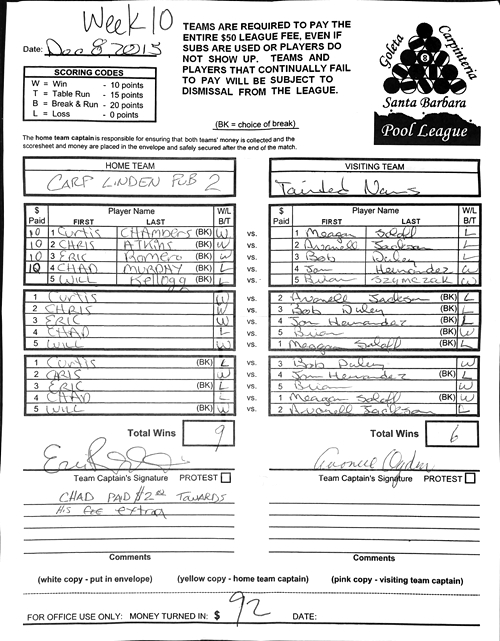 Week 10
Date: Dec 8, 2015
TEAMS ARE REQUIRED TO PAY THE
ENTIRE $50 LEAGUE FEE, EVEN IF
SUBS ARE USED OR PLAYERS DO
NOT SHOW UP. TEAMS AND
PLAYERS THAT CONTINUALLY FAIL
TO PAY WILL BE SUBJECT TO
DISMISSAL FROM THE LEAGUE.
SCORING CODES
W = Win - 10 points
T = Table Run - 15 points
B = Break & Run - 20 points
L = Loss - 0 points
(BK = choice of break)
Goleta
Carpinteria
8
Santa Barbara
Pool League
The home team captain is responsible for ensuring that both teams' money is collected and the
scoresheet and money are placed in the envelope and safely secured after the end of the match.
HOME TEAM VISITING TEAM
CARP LINDEN PUB 2
$ Paid Player Name FIRST LAST W/L B/T
$ Paid Player Name FIRST LAST W/L B/T
10 1 Curtis CHAMBERS (BK) W vs. 1 Meagan Soloff L
10 2 CHRIS ATKINS (BK) W vs. 2 Avanell Jackson L
10 3 ERIC Romero (BK) W vs. 3 Bob Duley L
10 4 CHAD MURDAY (BK) L vs. 4 Jon Hernandez W
5 WILL Kellogg (BK) L vs. 5 Brian Szymczak W
1 Curtis W vs. 2 Avanell Jackson (BK) L
2 CHRIS W vs. 3 Bob Duley (BK) L
3 ERIC W vs. 4 Jon Hernandez (BK) L
4 CHAD L vs. 5 Brian (BK) W
5 WILL W vs. 1 Meagan Soloff (BK) L
1 Curtis (BK) L vs. 3 Bob Duley W
2 CHRIS (BK) W vs. 4 Jon Hernandez L
3 ERIC (BK) L vs. 5 Brian W
4 CHAD (BK) L vs. 1 Meagan Soloff W
5 WILL (BK) W vs. 2 Avanell Jackson L
Total Wins 9 Total Wins 6
Team Captain's Signature PROTEST
Team Captain's Signature PROTEST
CHAD PAID $2.00 TOWARDS
HIS FEE extra
Comments Comments
(white copy - put in envelope) (yellow copy - home team captain) (pink copy - visiting team captain)
FOR OFFICE USE ONLY: MONEY TURNED IN: $ 92 DATE: